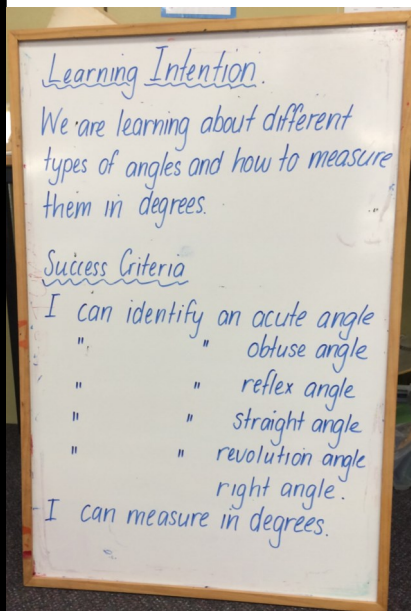 Learning Intention.
We are learning about different
types of angles and how to measure
them in degrees.
Success Criteria
I can identify an acute angle
" " obtuse angle
" " reflex angle
" " straight angle
" " revolution angle
right angle.
I can measure in degrees.